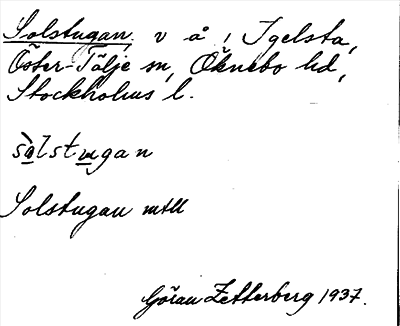 Solstugan, v å, Igelsta,
Öster-Tälje sn, Öknebo hd,
Stockholms l.
sòlstugan
Solstugan mtll
Göran Zetterberg 1937.